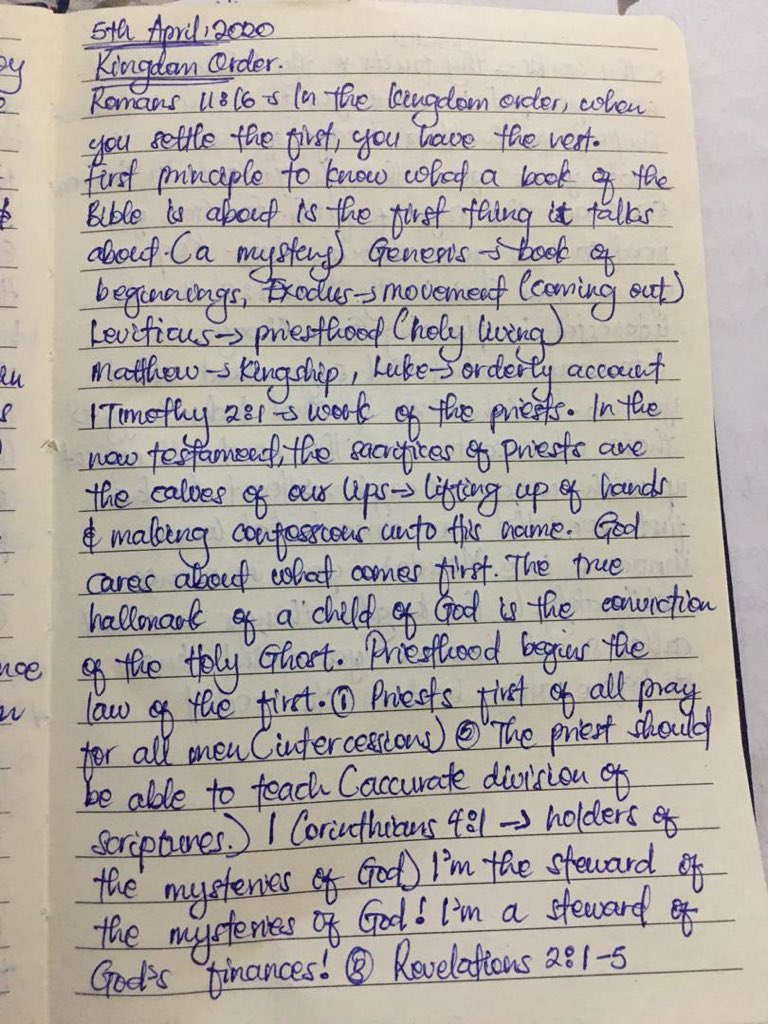 5th April, 2020
Kingdom Order.
Romans 11:16 → In the kingdom order, when
you settle the first, you have the rest.
First principle to know what a book of the
Bible is about is the first thing it talks
about. (a mystery) Genesis → book of
beginnings, Exodus → movement (coming out)
Leviticus → priesthood (holy living)
Matthew → Kingship, Luke → orderly account
1 Timothy 2:1 → work of the priests. In the
new testament, the sacrifices of priests are
the calves of our lips → lifting up of hands
& making confessions unto His name. God
cares about what comes first. The true
hallmark of a child of God is the conviction
of the Holy Ghost. Priesthood begins the
law of the first. ① Priests first of all pray
for all men (intercessions) ② The priest should
be able to teach (accurate division of
scriptures.) 1 Corinthians 4:1 → holders of
the mysteries of God) I'm the steward of
the mysteries of God! I'm a steward of
God's finances! ③ Revelations 2:1-5